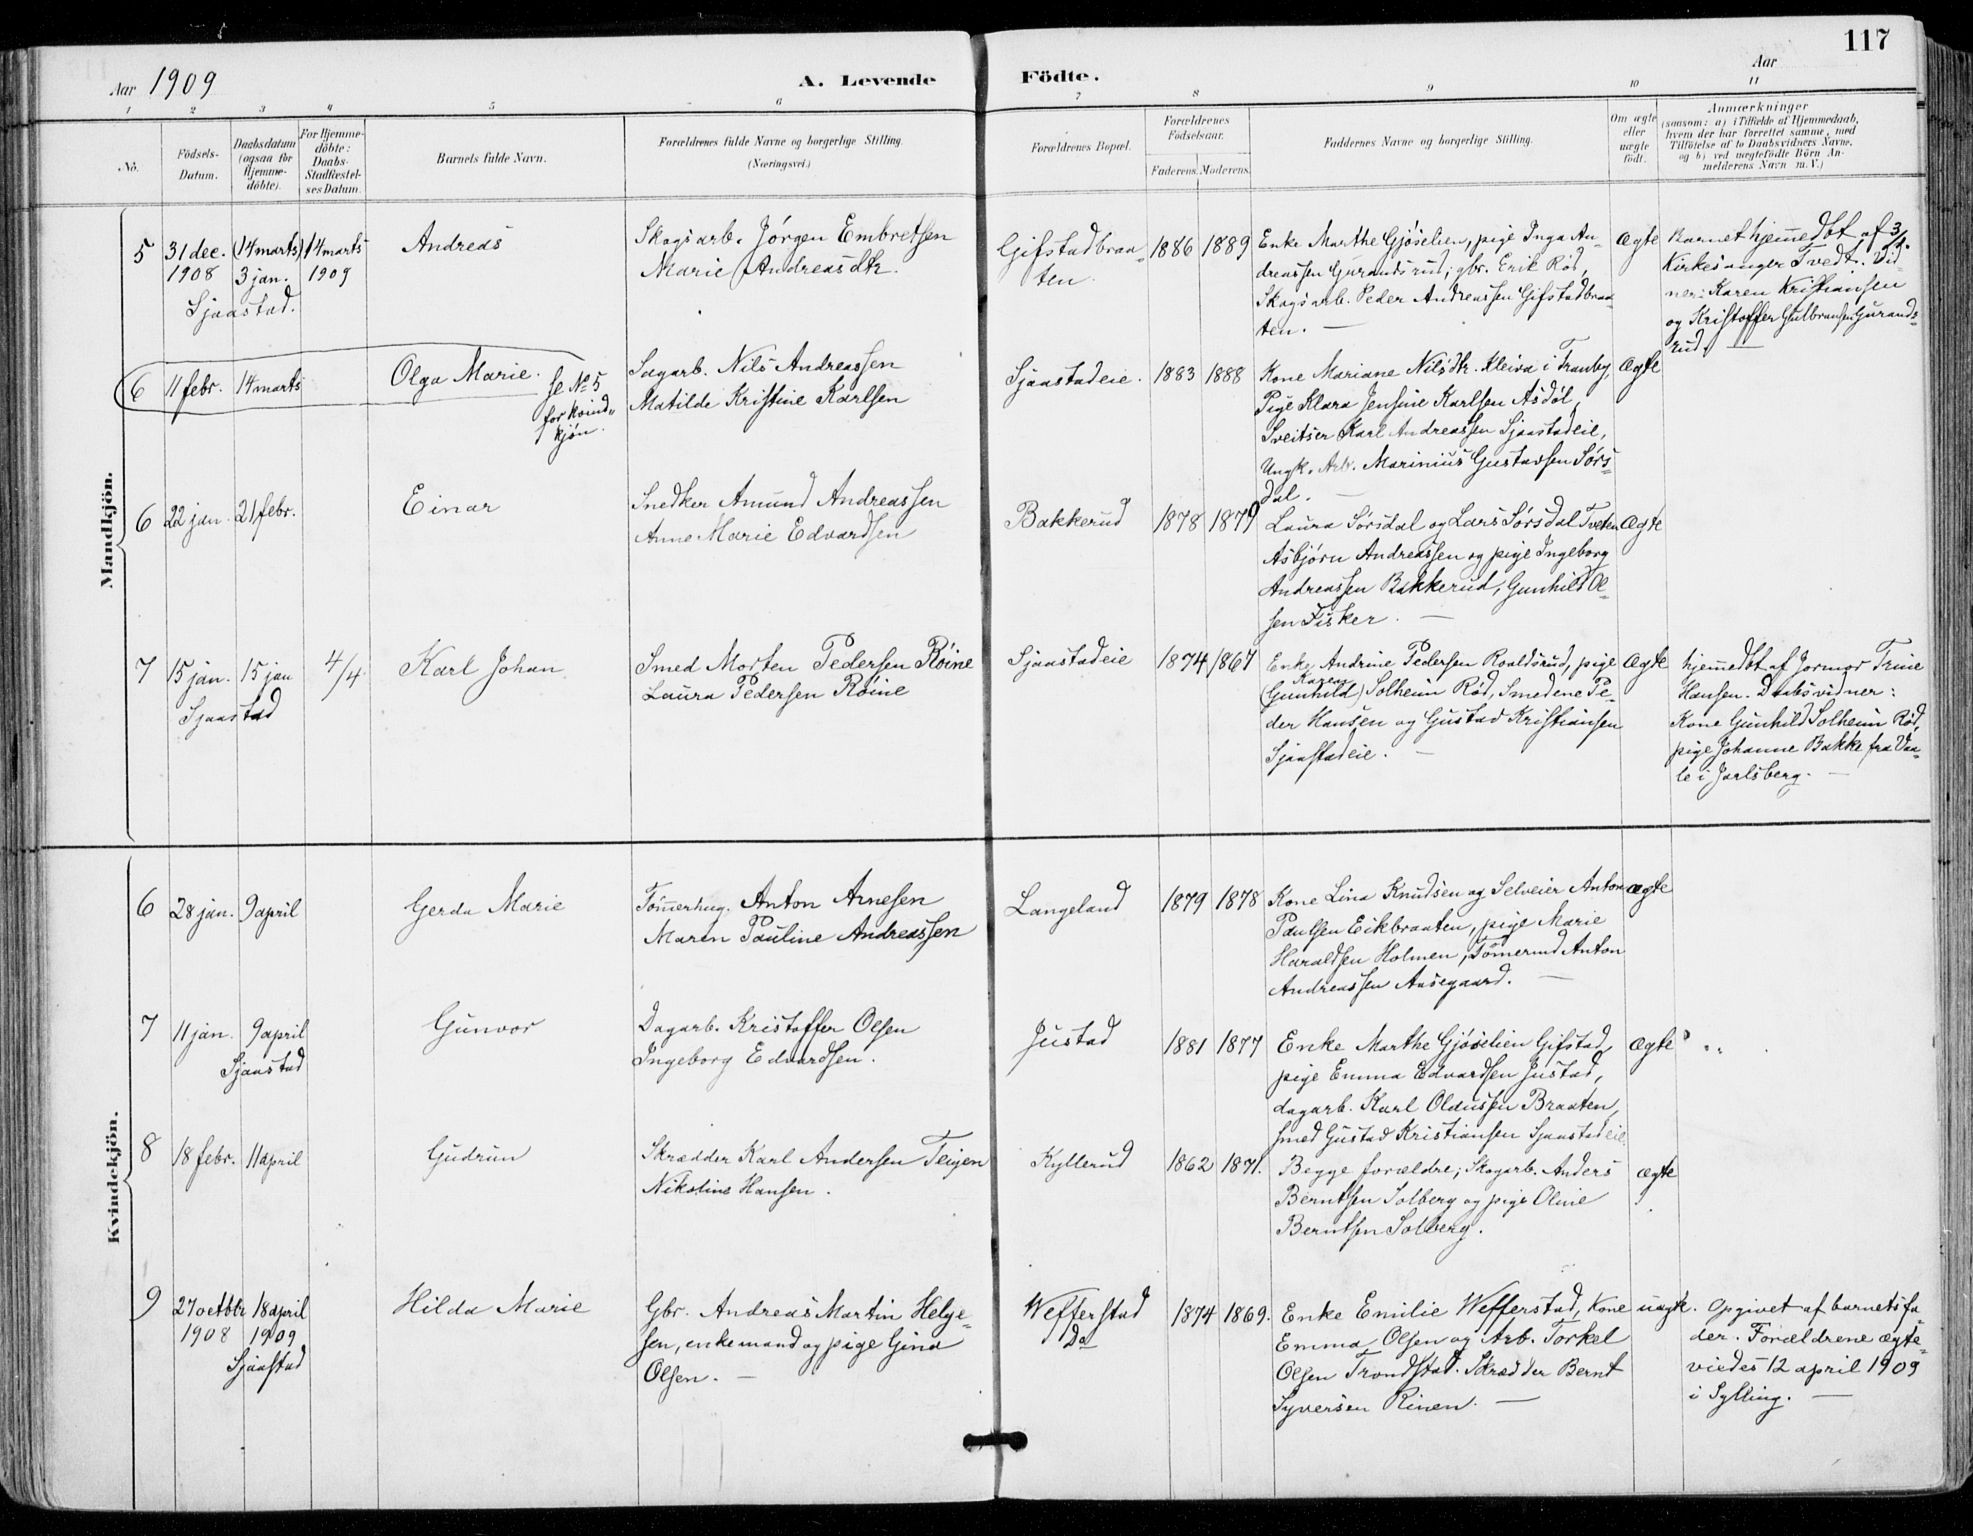 117
Aar 1909
A. Levende Födte.
Aar
1 2 3 4 5 6 7 8 9 10 11
No.
Födsels-Datum.
Daabsdatum (ogsaa for Hjemme-döbte).
For Hjemme-döbte: Daabs-Stadfæstel-ses Datum.
Barnets fulde Navn.
Forældrenes fulde Navne og borgerlige Stilling. (Næringsvei.)
Forældrenes Bopæl.
Forældrenes Födselsaar.
Faderens. Moderens.
Faddernes Navne og borgerlige Stilling.
Om ægte eller uægte födt.
Anmærkninger
(saasom: a) i Tilfælde af Hjemmedaab, hvem der har forrettet samme, med Tilföielse af to Daabsvidners Navne, og b) ved uægtefödte Börn An-melderens Navn m. V.)
Mandkjön.
5
31 dec. 1908
(14 marts) 3 jan.
Sjaastad.
14 marts 1909
Andreas
Skogsarb. Jörgen Embretsen
Marie Andreasdtr.
Gifstadbraa-
ten.
1886 1889
Enke Marthe Gjöselien, pige Inga An-
dreassen Gurandsrud; gbr. Erik Röd,
Skogsarb. Peder Andreassen Gifstadbraa-
ten. —
Ægte
Barnet hjemedöt af 3/1.
Kirkesanger Tvedt. Vid-
ner: Karen Kristiansen
og Kristoffer Gulbransen Gurands-
rud. —
6
11 febr.
14 marts
Olga Marie.
se No 5
for kvind.
kjön.
Sagarb. Nils Andreassen
Matilde Kristine Karlsen
Sjaastadeie.
1883 1888
Kone Mariane Nilsdtr. Kleiva i Tranby,
Pige Klara Jensine Karlsen Asdöl,
Sveitser Karl Andreassen Sjaastadeie,
Ungk. Arb. Marinius Gustavsen Sörs-
dal. —
Ægte
6
22 jan.
21 febr.
Einar
Snedker Amund Andreassen
Anne Marie Edvardsen
Bakkerud
1878 1879
Laura Sörsdal og Lars Sörsdal Tveten
Asbjörn Andreassen og pige Ingeborg
Andreassen Bakkerud, Gunhild Ol-
sen Fisker. —
Ægte
7
15 jan.
15 jan
Sjaastad
4/4
Karl Johan
Smed Morten Pedersen Röine
Laura Pedersen Röine
Sjaastadeie
1874 1867
Enke Andrine Pedersen Roaldsrud, pige
Karen
(Gunhild) Solheim Röd, Smedene Pe-
der Hansen og Gustav Kristiansen
Sjaastadeie. —
Ægte
hjemedöt af Jormor Trine
Hansen. Daabsvidner:
Kone Gunhild Solheim Röd,
pige Johanne Bakke fra Vaa-
le i Jarlsberg. —
Kvindekjön.
6
28 jan.
9 april
Gerda Marie
Tömerhug. Anton Arnesen
Maren Pauline Andreassen
Langeland
1879 1878
Kone Lina Knudsen og Selveier Anton
Paulsen Eikbraaten, pige Marie
Haraldsen Holmen, Tömermd Anton
Andreassen Aasegaard. —
Ægte
7
11 jan.
9 april
Sjaastad
Gunvor
Dagarb. Kristoffer Olsen
Ingeborg Edvardsen.
Justad
1881 1877
Enke Marthe Gjöselien Gifstad,
pige Emma Edvardsen Justad,
dagarb. Karl Oldussen Braaten,
smed Gustav Kristiansen Sjaastadeie.
Ægte
8
18 febr.
11 april
Gudrun
Skrædder Karl Andersen Teigen
Nikoline Hansen.
Kyllerud
1862 1871.
Begge forældre; Skogarb. Anders
Berntsen Solberg og pige Oline
Berntsen Solberg.
ægte
9
27 octbr 1908
18 april 1909
Sjaastad
Hilda Marie
Gbr. Andreas Martin Helge-
sen, enkemand og pige Gina
Olsen. —
Wefferstad
Do
1874 1869.
Enke Emilie Wefferstad, Kone
Emma Olsen og Arb. Torkel
Olsen Trondstad. Skrædder Bernt
Syversen Rinen. —
uægte.
Opgivet af barnets fa-
der. Forældrene ægte-
viedes 12 april 1909
i Sylling. —